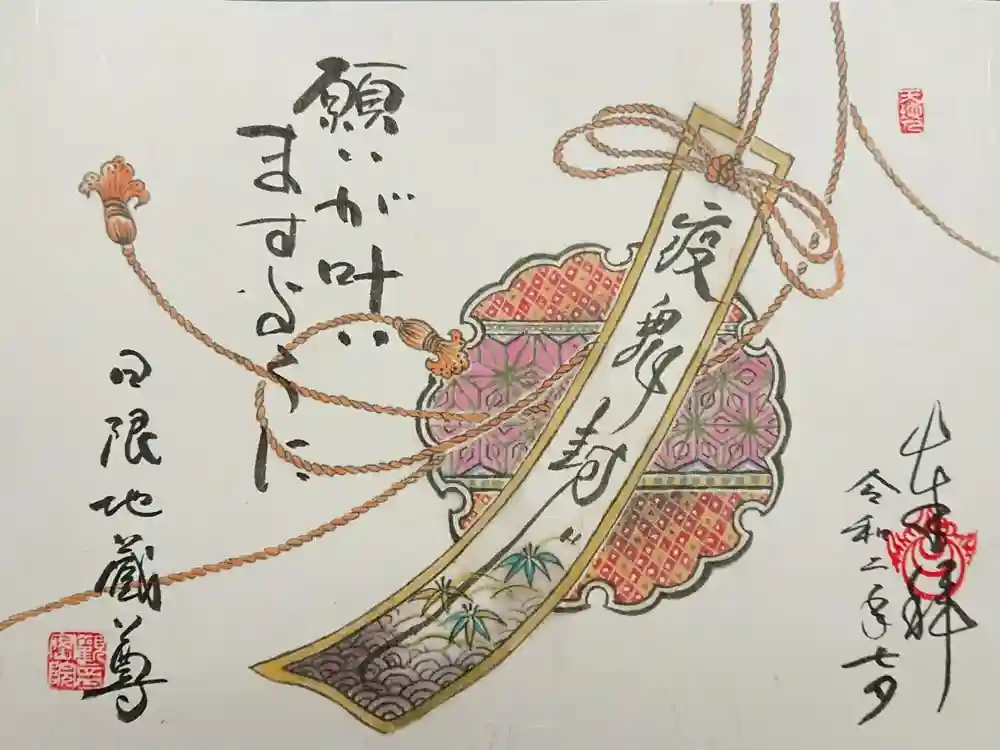 令和二年七夕
疫舞封じ
願いが叶い
ますように
日限地蔵尊